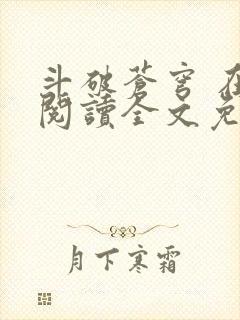 斗破苍穹 在
閱讀全文免
月下寒霜